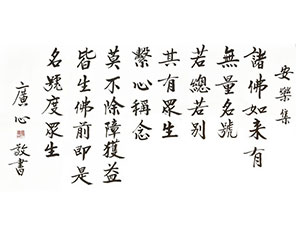 安樂集
諸佛如来有
無量名號
若總若别
其有眾生
繫心稱念
莫不除障獲益
皆生佛前即是
名號度眾生
廣心敬書